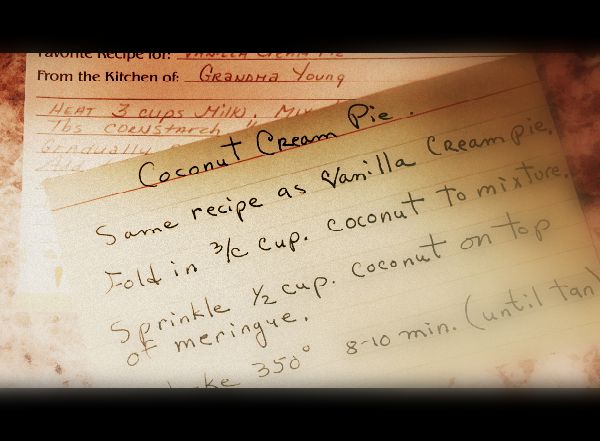 Favorite Recipe for: Vanilla Cream Pie
From the Kitchen of: Grandma Young
Heat 3 cups Milk),
Tbs cornstarch
Gradually
Coconut Cream Pie.
Same recipe as Vanilla Cream pie.
Fold in 3/c cup. coconut to mixture.
Sprinkle 1/2 cup. coconut on top
of meringue.
350° 8-10 min. (until tan)